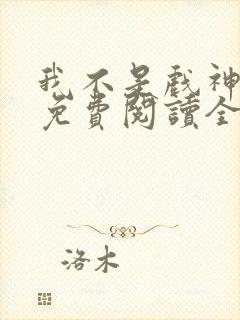 我不是戏神
免費閱讀全
洛木